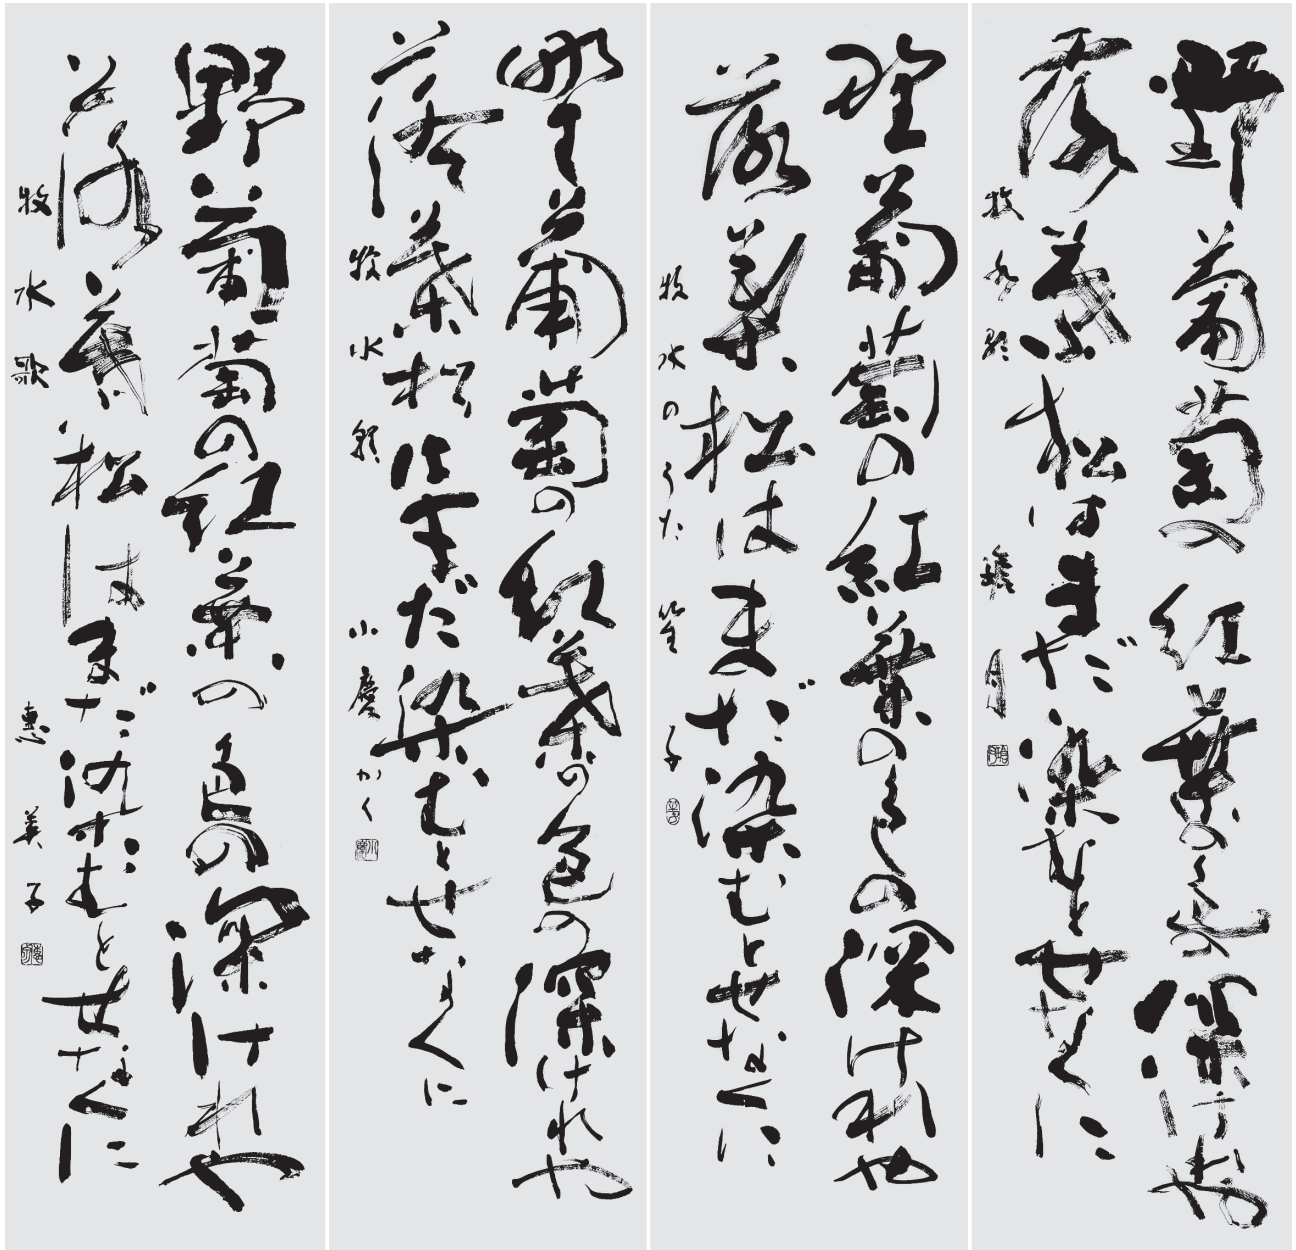 野葡萄の紅葉の色の深けれや
落葉松はまだ染むとせなくに
牧水歌 月
野葡萄の紅葉の色の深けれや
落葉松はまだ染むとせなくに
牧水のうた 笙子
野葡萄の紅葉の色の深けれや
落葉松はまだ染むとせなくに
牧水歌 小慶かく
野葡萄の紅葉の色の深けれや
落葉松はまだ染むとせなくに
牧水歌 惠美子